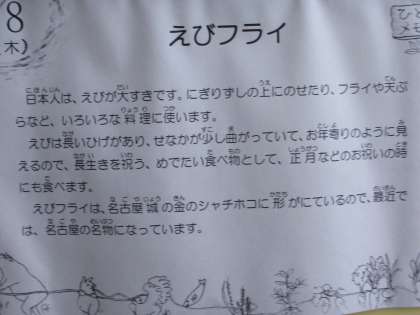 8
(木)
えびフライ
ひと
メモ
日本人は、えびが大すきです。にぎりずしの上にのせたり、フライや天ぷ
らなど、いろいろな料理に使います。
えびは長いひげがあり、せなかが少し曲がっていて、お年寄りのように見
えるので、長生きを祝う、めでたい食べ物として、正月などのお祝いの時
にも食べます。
えびフライは、名古屋城の金のシャチホコに形がにているので、最近で
は、名古屋の名物になっています。